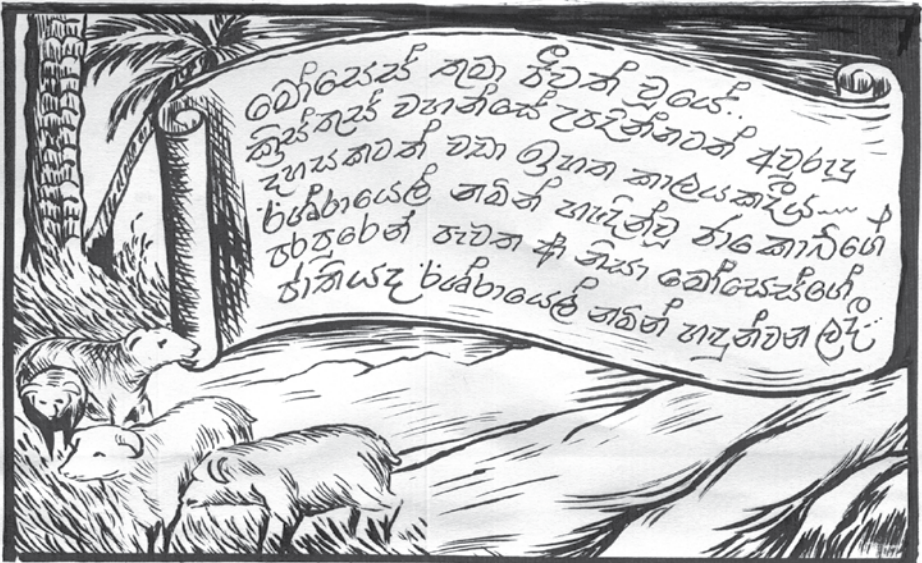 මෝසෙස් තුමා ජීවත් වූයේ..
ක්‍රිස්තුස් වහන්සේ උපදින්නටත් අවුරුදු
දහසකටත් වඩා ඉහත කාලයකදීය....
ඊශ්‍රායෙල් නමින් හැඳින්වූ ජාකොබ්ගේ
පරපුරෙන් පැවත ආ නිසා මෝසෙස්ගේ
ජාතියද ඊශ්‍රායෙල් නමින් හඳුන්වන ලදී..